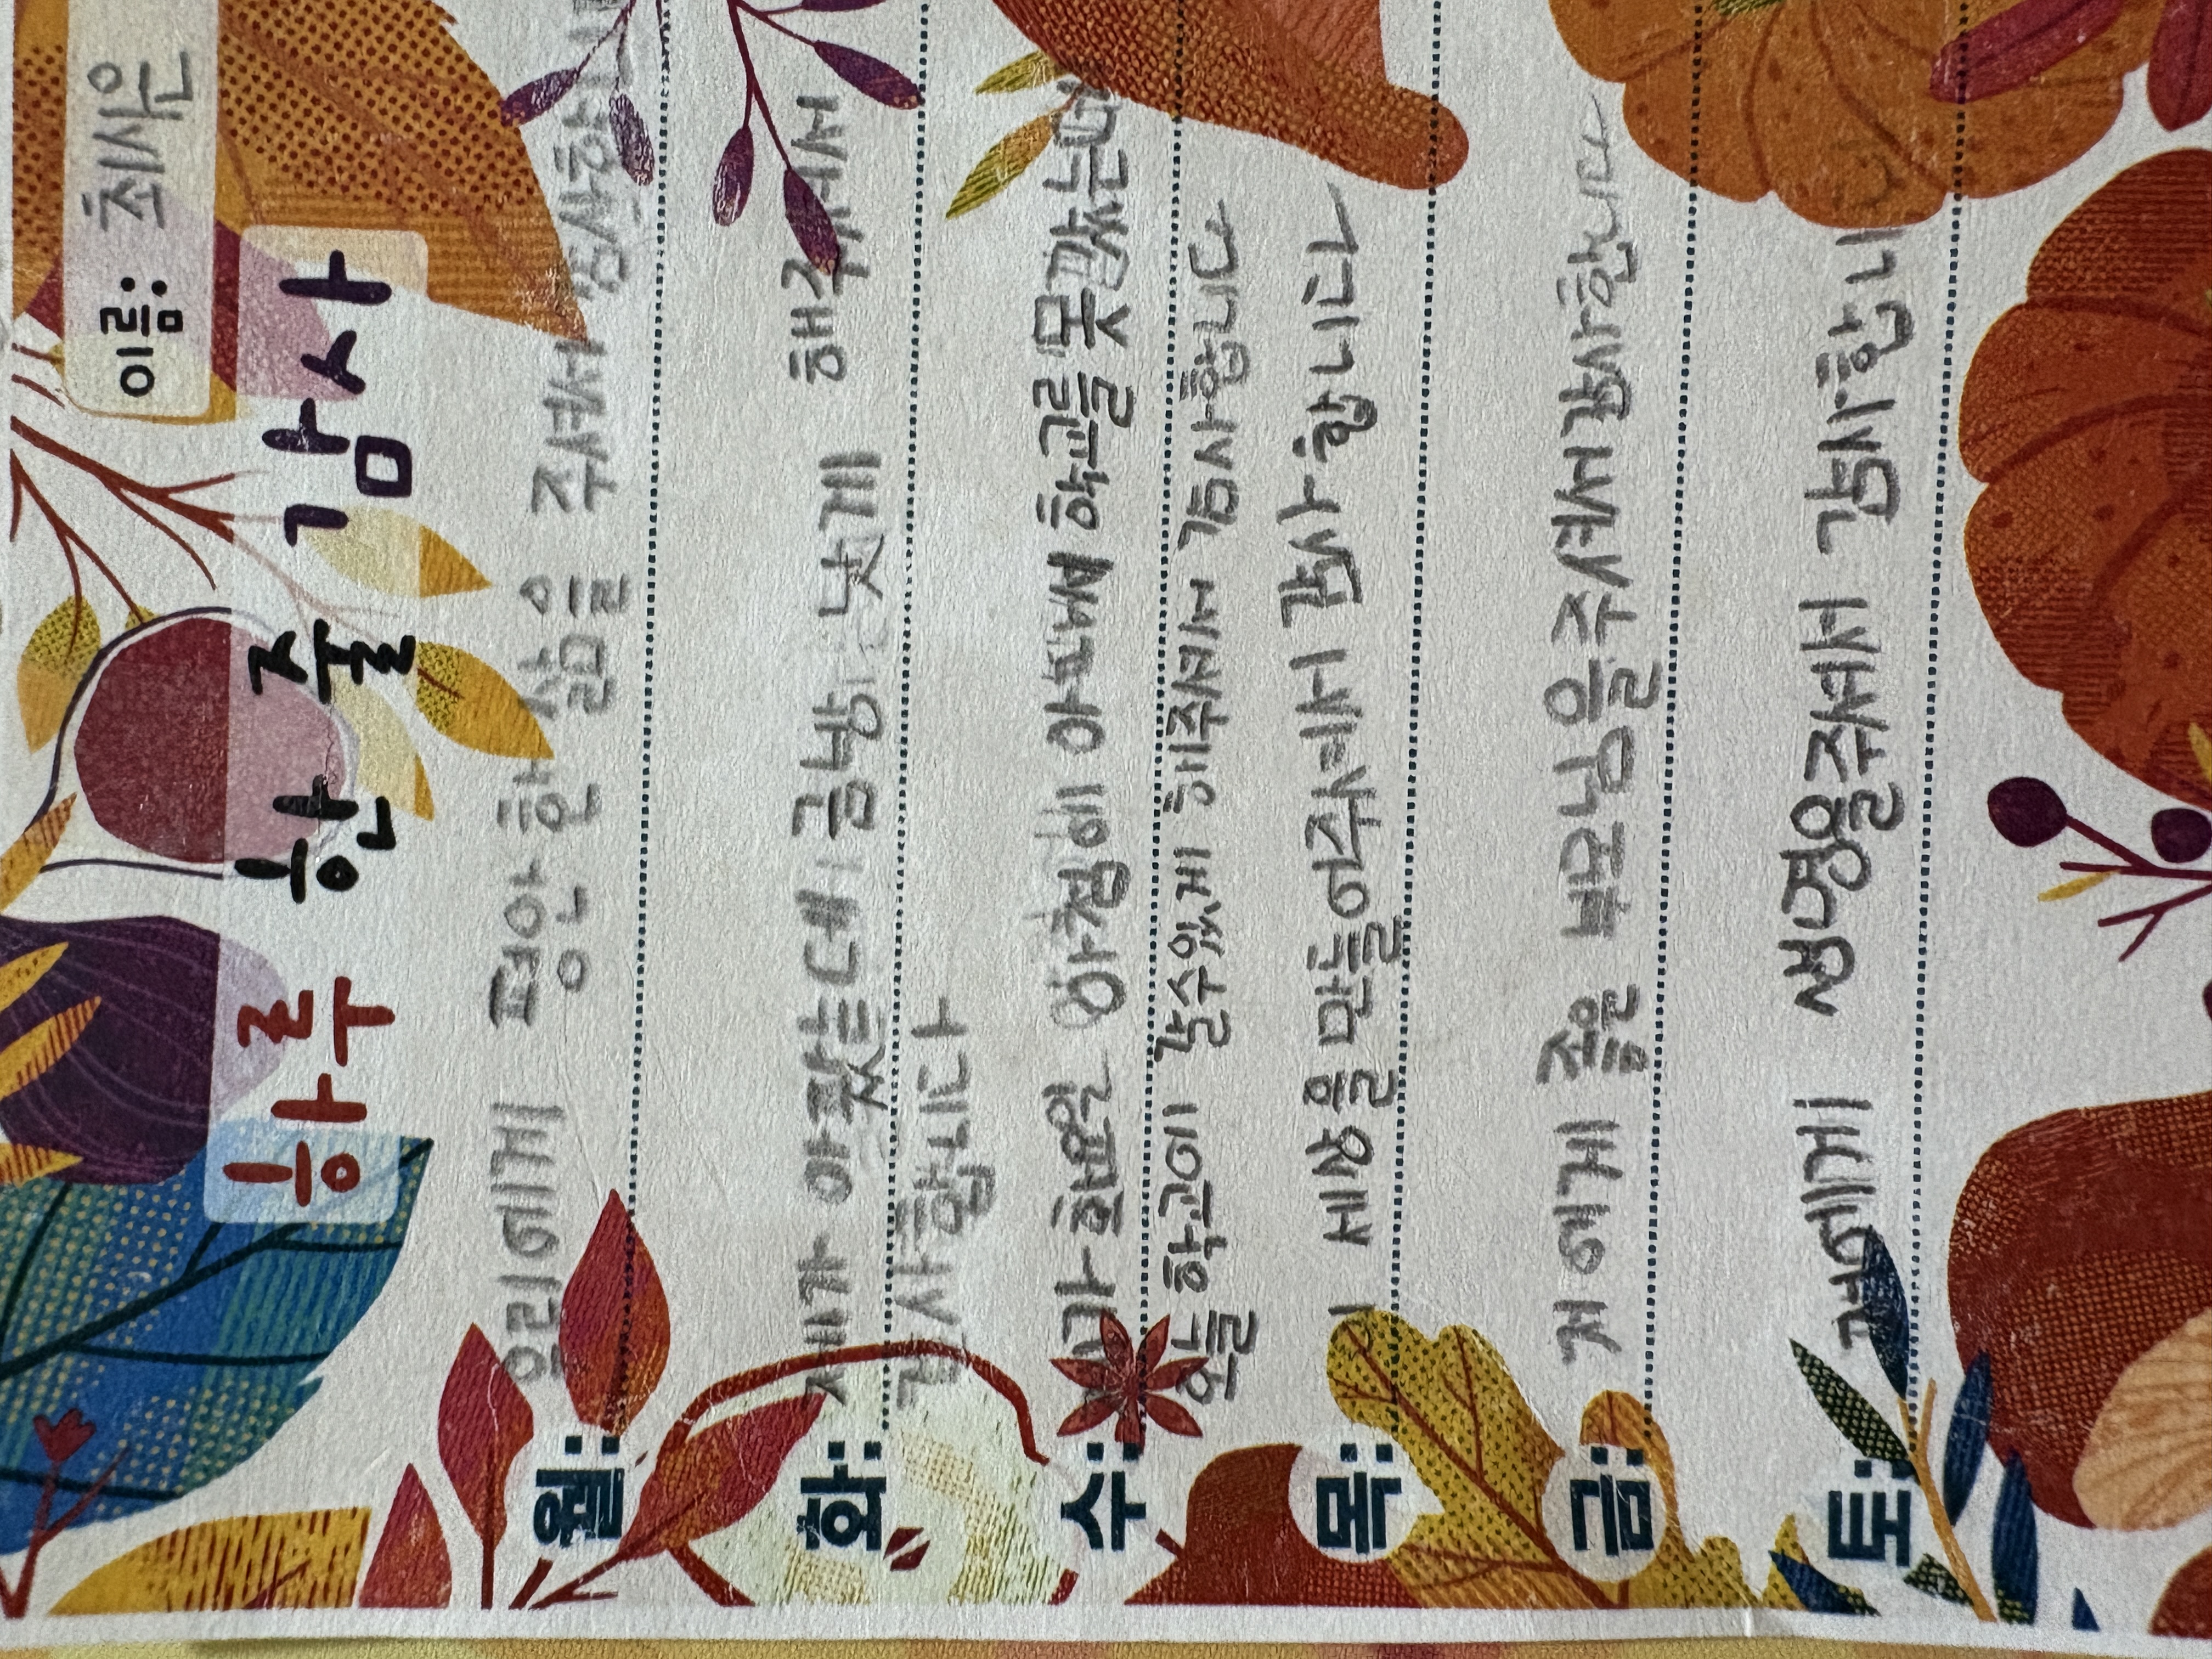 이름:
하루 한 줄 감사
월: 우리에게 평안 한 삶을 주셔서 감사합니다
화: 제가 아팠는대 금방 낫게 해주셔서
감사합니다
수: 제가 화요일 아침에 아파서 학교를 못갔는데
오늘 학교에 갈수있게 해주셔서 감사합니다
목: 이 세상을 만들어주셔서 감사합니다
금: 저에게 좋은 부모님을주셔서감사합니다
토: 저에게 생명을주셔서 감사합니다